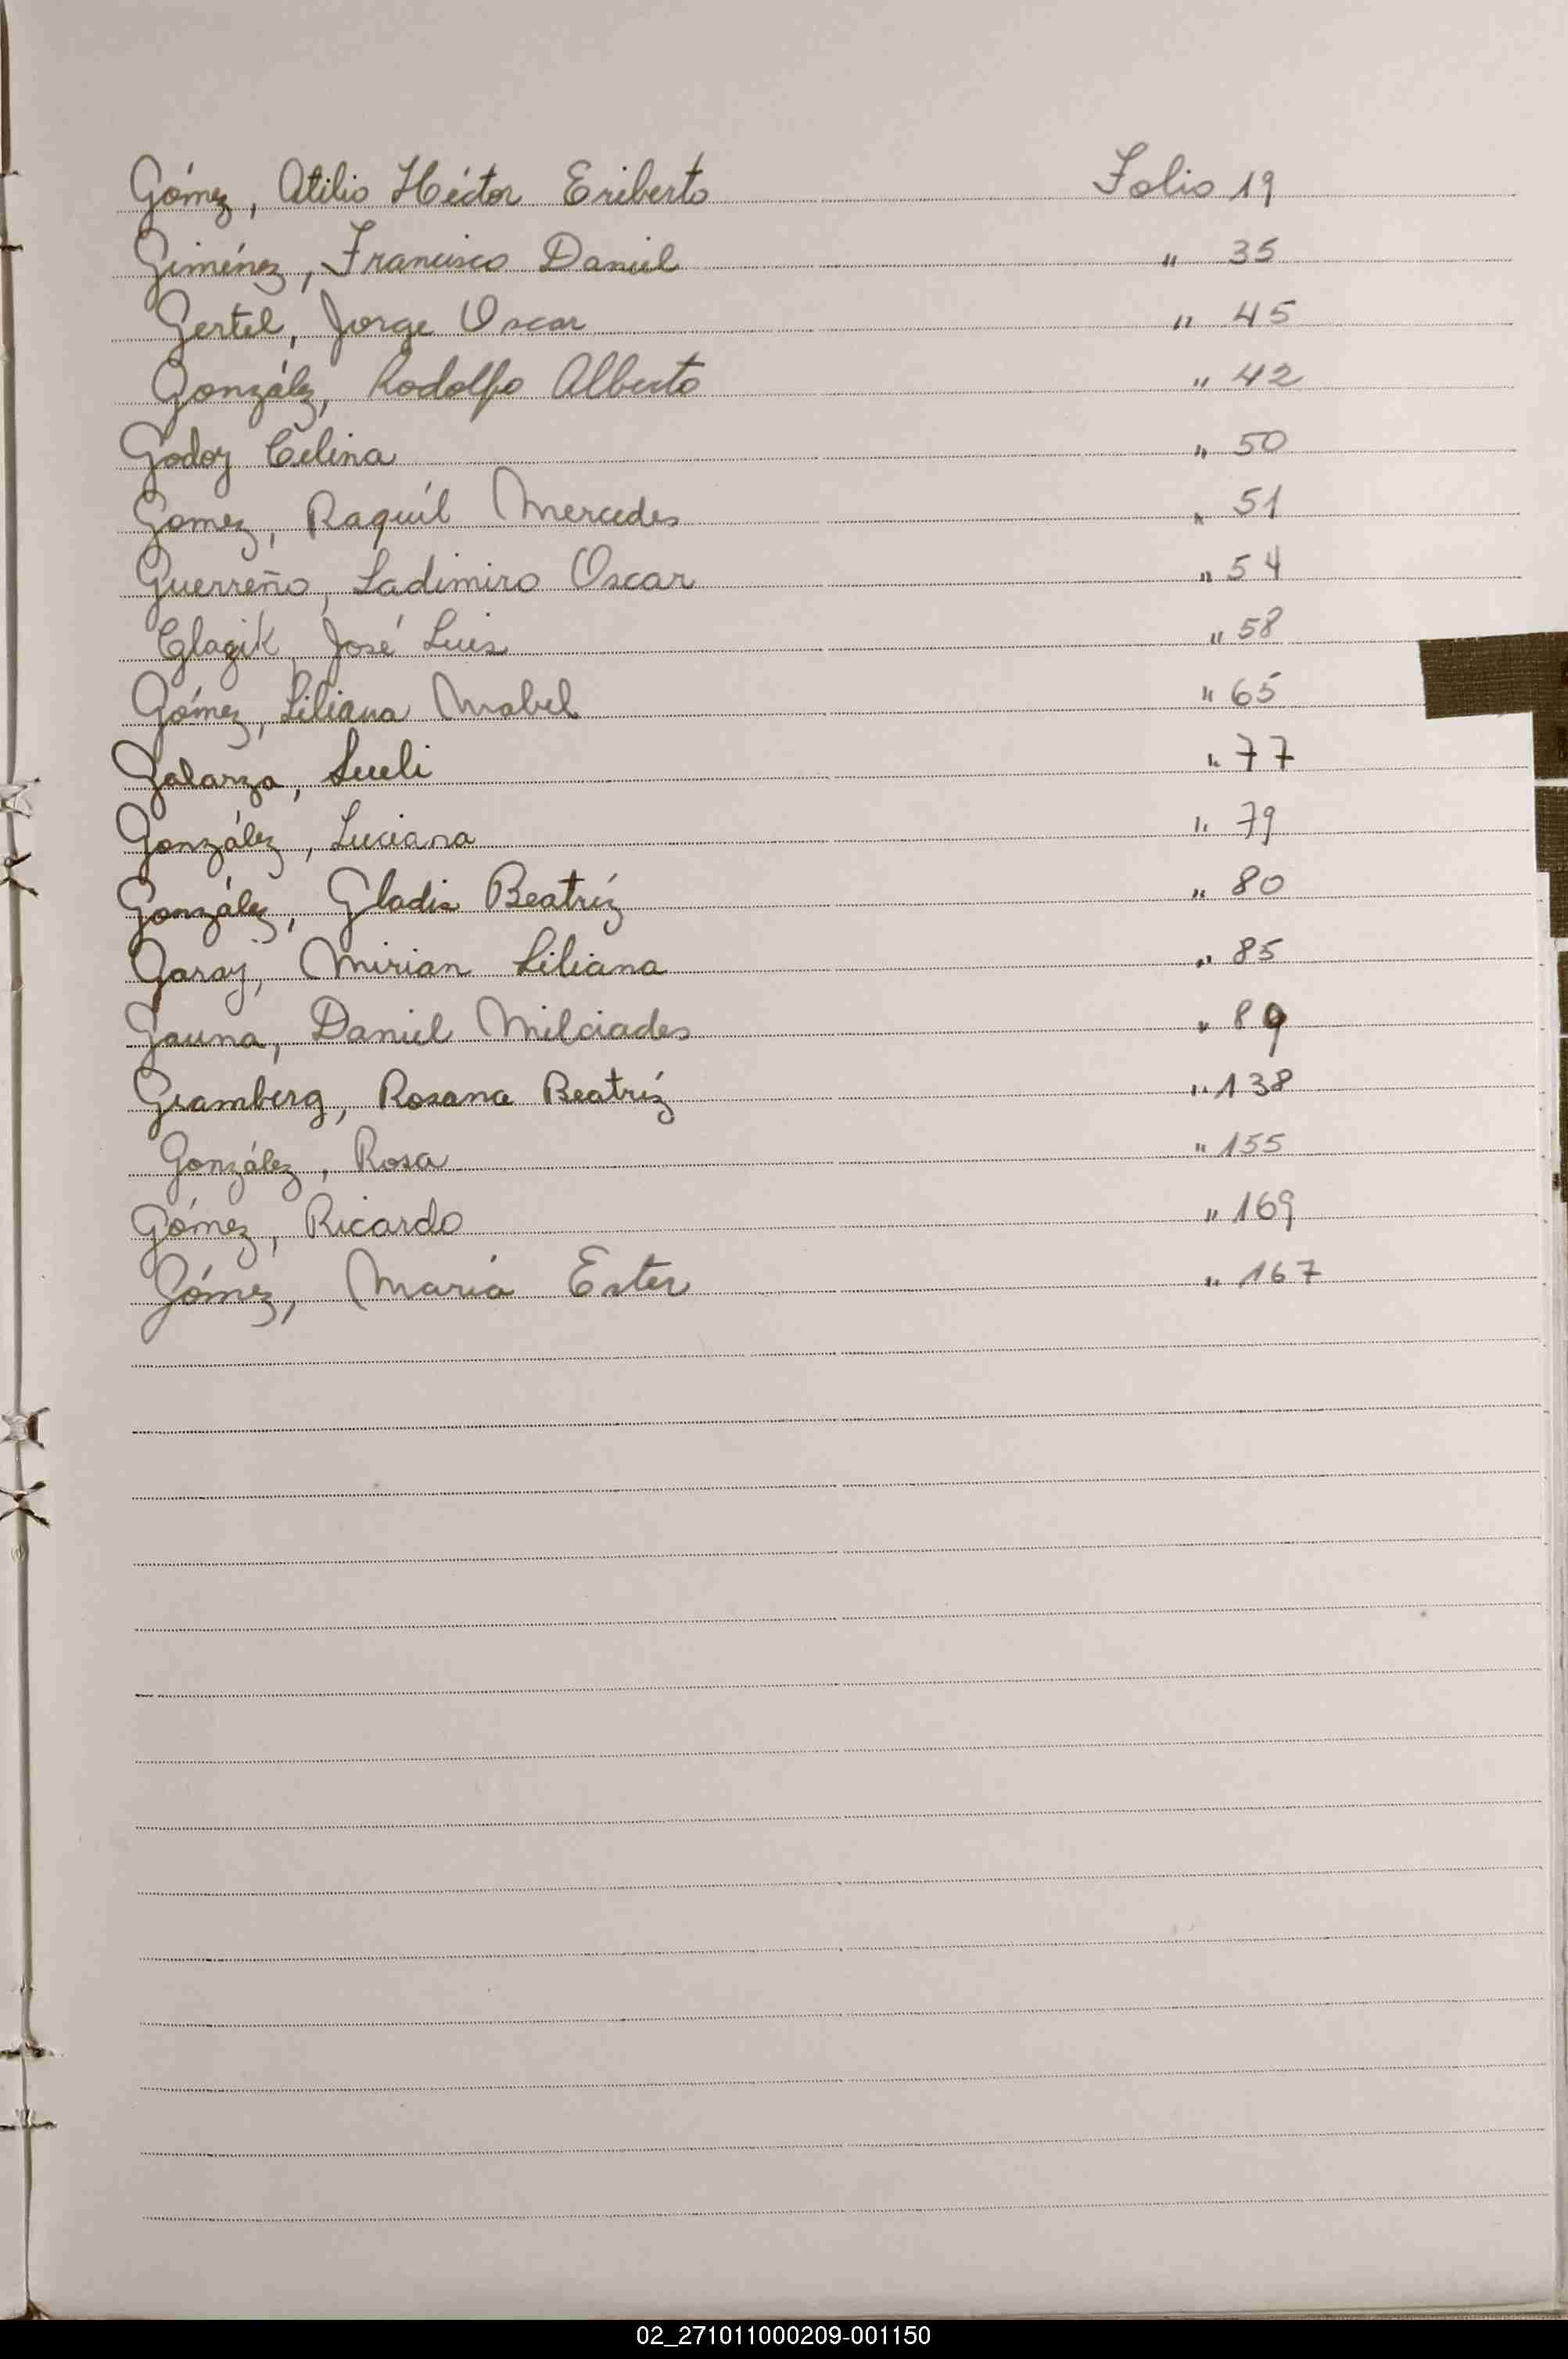 Gómez, Atilio Héctor Eriberto Folio 19
Giménez, Francisco Daniel " 35
Gertel, Jorge Oscar " 45
González, Rodolfo Alberto " 42
Godoy Celina " 50
Gomez, Raquél Mercedes " 51
Guerreño, Ladimiro Oscar " 54
Glagik, José Luis " 58
Gómez, Liliana Mabel " 65
Galarza, Sueli " 77
González, Luciana " 79
González, Gladis Beatríz " 80
Garay, Mirian Liliana " 85
Gauna, Daniel Milciades " 89
Gramberg, Rosana Beatríz " 138
González, Rosa " 155
Gómez, Ricardo " 169
Gómez, María Ester " 167
02_271011000209-001150